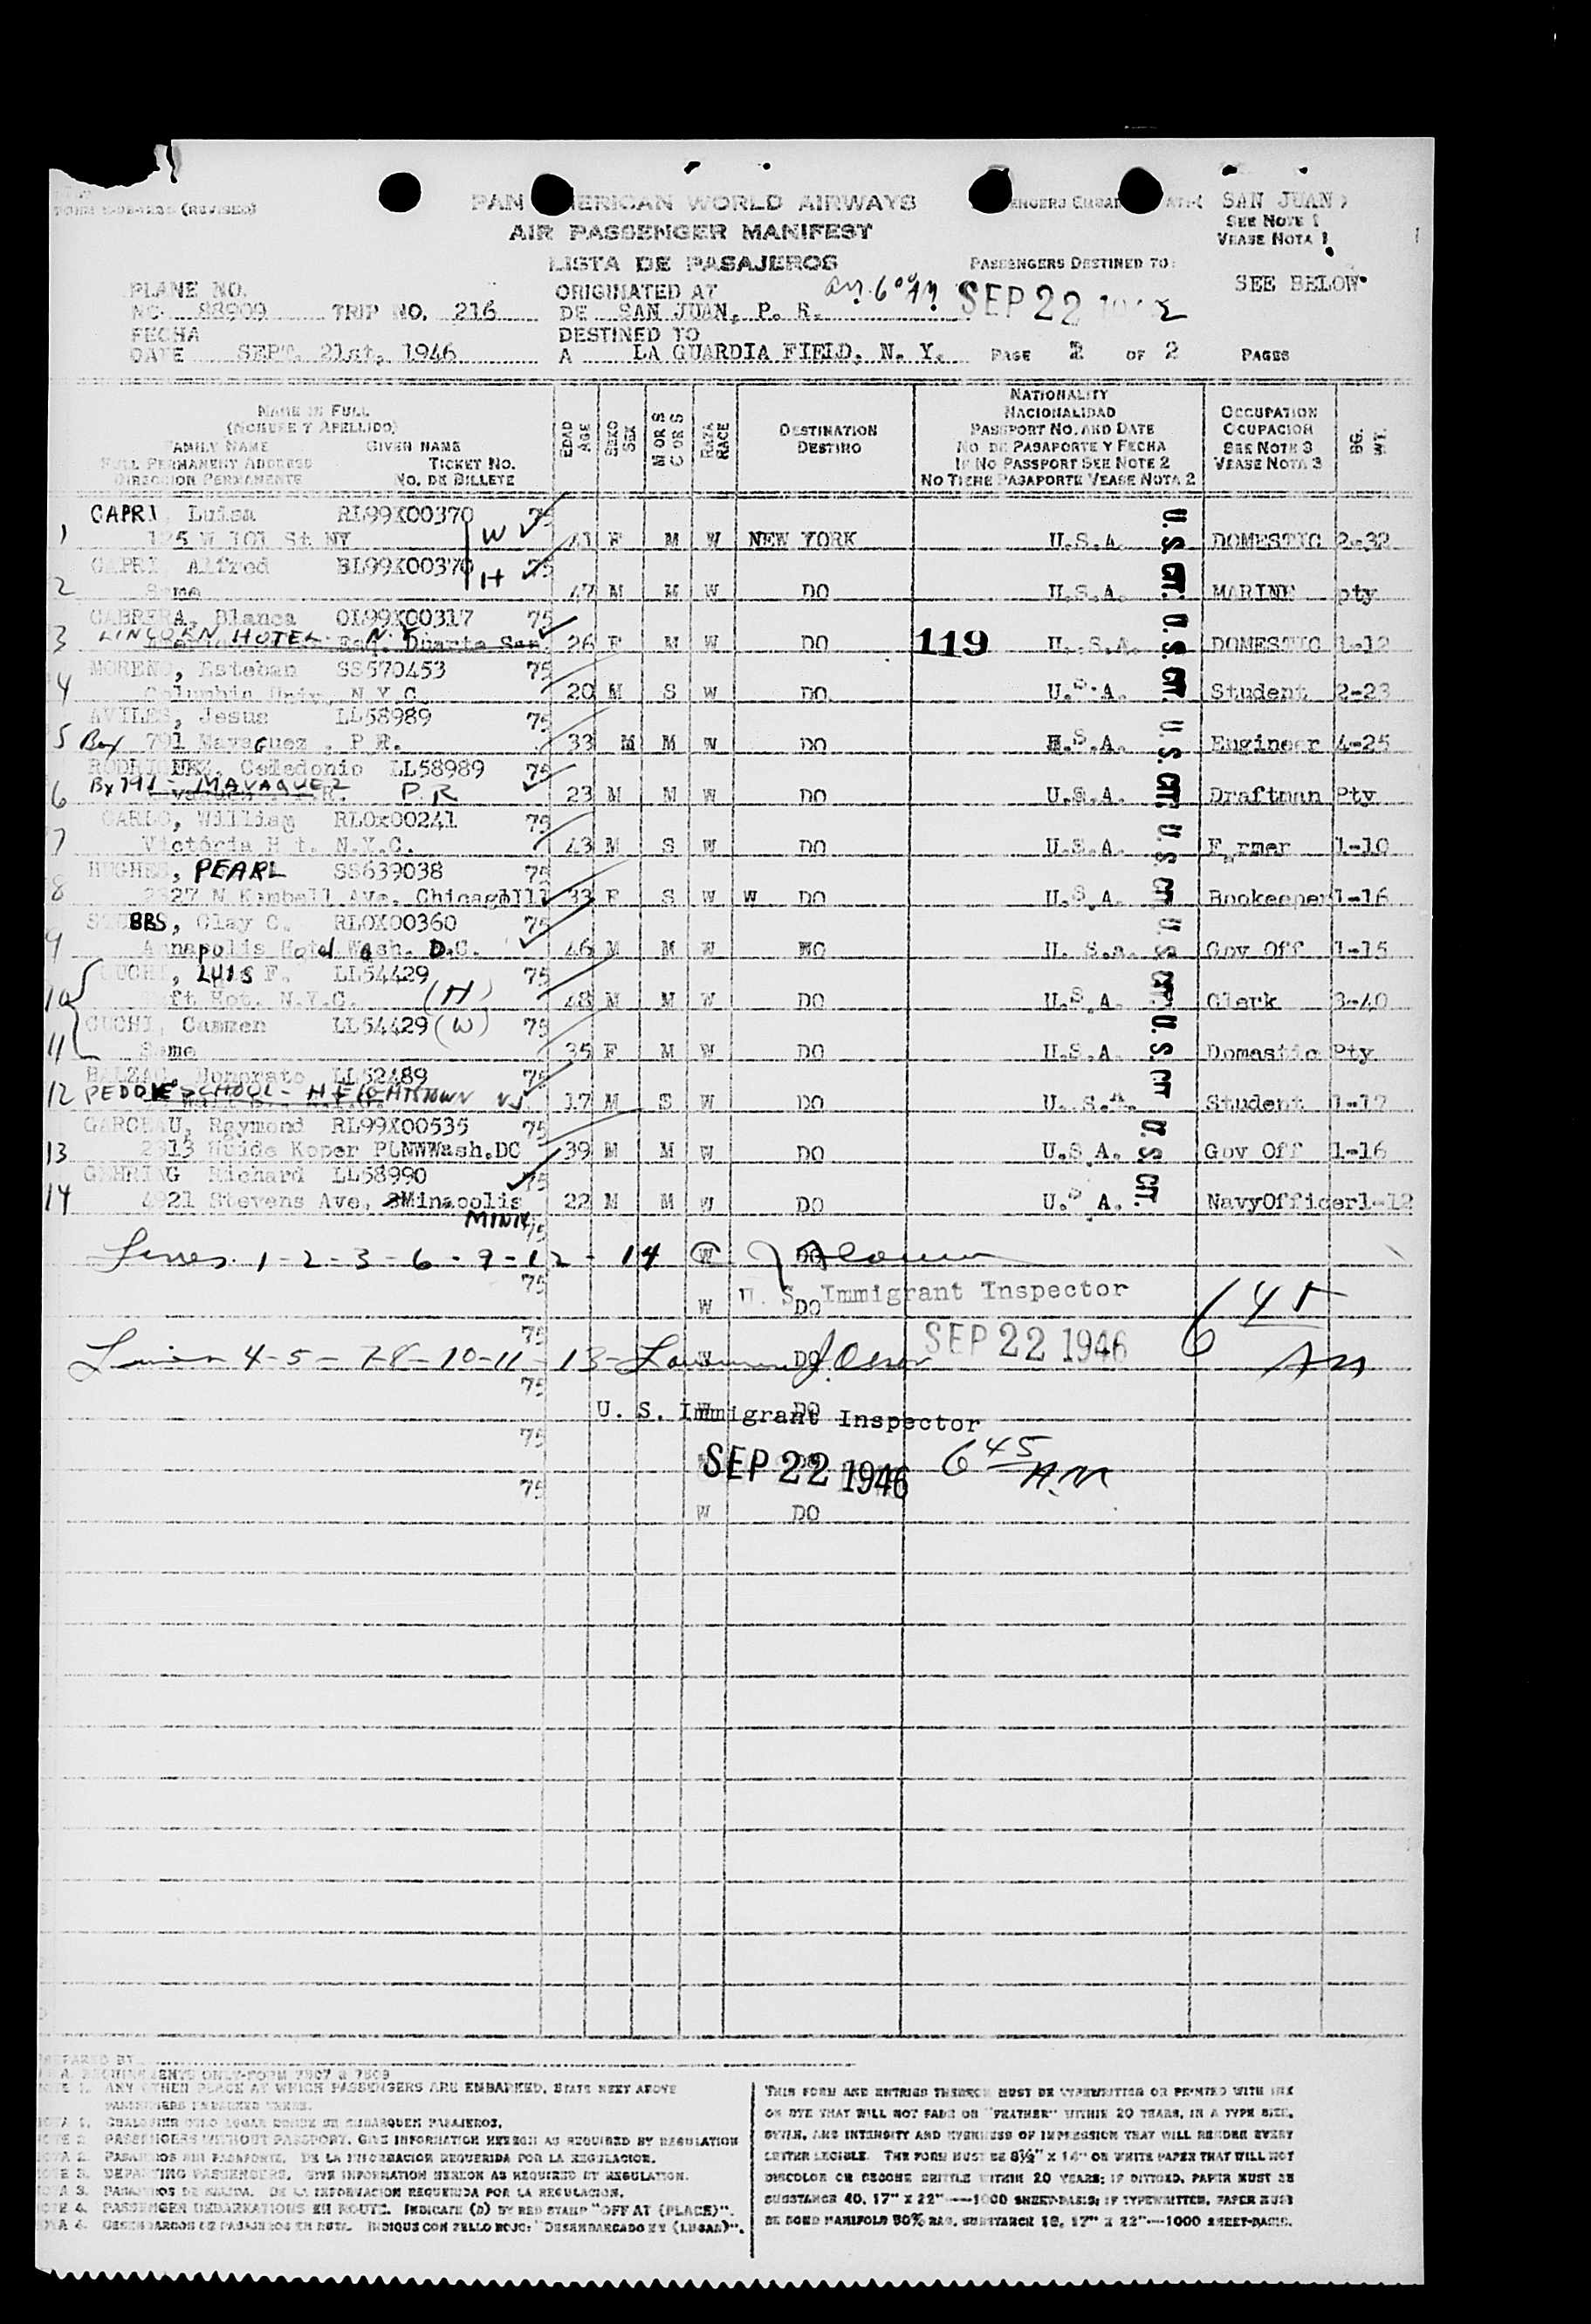 (REVISED)
PAN AMERICAN WORLD AIRWAYS
AIR PASSENGER MANIFEST
LISTA DE PASAJEROS
SAN JUAN )
SEE NOTE 1
VEASE NOTA 1
PASSENGERS DESTINED TO:
SEE BELOW
PLANE NO.
NC 88909 TRIP NO. 216
ORIGINATED AT
DE SAN JUAN, P. R.
SEP 22
FECHA
DATE SEPT. 21st, 1946
DESTINED TO
A LA GUARDIA FIELD, N. Y.
PAGE 2 OF 2 PAGES
NAME IN FULL
(NOMBRE Y APELLIDO)
FAMILY NAME GIVEN NAME
FULL PERMANENT ADDRESS TICKET NO.
DIRECCION PERMANENTE NO. DE BILLETE
EDAD AGE
SEXO SEX
M OR S C OR S
RAZA RACE
DESTINATION
DESTINO
NATIONALITY
NACIONALIDAD
PASSPORT NO. AND DATE
NO. DE PASAPORTE Y FECHA
IF NO PASSPORT SEE NOTE 2
NO TIENE PASAPORTE VEASE NOTA 2
OCCUPATION
OCUPACION
SEE NOTE 3
VEASE NOTA 3
BG. WT.
CAPRI, Luisa RL99X00370 75
1 125 W 101 St NY W 41 F M W NEW YORK U.S.A. DOMESTIC 2-32
CAPRI, Alfred RL99X00370 75
2 Same H 47 M M W DO U.S.A. MARINE pty
CABRERA, Blanca OL99X00317 75
3 LINCOLN HOTEL N.Y. Duarte 26 F M W DO 119 U.S.A. DOMESTIC 1-12
MORENO, Esteban SS670453 75
4 Columbia Univ. N.Y.C. 20 M S W DO U.S.A. Student 2-23
AVILES, Jesus LL58989 75
5 Box 791 Mayaguez, P.R. 33 M M W DO U.S.A. Engineer 4-25
RODRIGUEZ, Celedonio LL58989 75
6 Bx 791 - MAYAGUEZ P.R. 23 M M W DO U.S.A. Draftman Pty
William RLOX00241 75
7 Victoria Hot. N.Y.C. 43 M S W DO U.S.A. Farmer 1-10
HUGHES, PEARL SS639038 75
8 2527 N Kimball Ave. Chicago Ill 33 F S W W DO U.S.A. Bookeeper 1-16
STUBBS, Clay C. RLOX00360 75
9 Annapolis Hotel Wash. D.C. 46 M M W DO U.S.a. Gov Off 1-15
CUCHI, LUIS F. LL54429 75
10 Taft Hot. N.Y.C. (H) 48 M M W DO U.S.A. Clerk 3-40
CUCHI, Carmen LL54429 (W) 75
11 Same 35 F M W DO U.S.A. Domastic Pty
BALZAC, Honorato LL52489 75
12 PEDDIE SCHOOL - HEIGHTSTOWN NJ 17 M S W DO U.S.A. Student 1-17
GARCEAU, Raymond RL99X00535 75
13 2313 Huide Koper PLNWWash.DC 39 M M W DO U.S.A. Gov Off 1-16
GEHRING Richard LL58990 75
14 4921 Stevens Ave. Minapolis 22 M M W DO U.S.A. NavyOfficer 1-12
MINN. 75
U.S. CIT. U.S. CIT. U.S. CIT. U.S. CIT. U.S. CIT. U.S. CIT. U.S. CIT.
Lines 1-2-3-6-9-12-14 W DO
75
W DO
U. S. Immigrant Inspector
SEP 22 1946
6 45 AM
75
Lines 4-5-7-8-10-11-13- W DO
75
U. S. Immigrant Inspector
W DO
75
SEP 22 1946
6 45 A.M
75
W DO
PREPARED BY
REQUIREMENTS ONLY-FORM 7507 & 7509
NOTE 1. ANY OTHER PLACE AT WHICH PASSENGERS ARE EMBARKED, STATE NEXT ABOVE
PASSENGERS EMBARKED THERE.
NOTA 1. CUALQUIER OTRO LUGAR DONDE SE EMBARQUEN PASAJEROS.
NOTE 2. PASSENGERS WITHOUT PASSPORT. GIVE INFORMATION HEREON AS REQUIRED BY REGULATION
NOTA 2. PASAJEROS SIN PASAPORTE. DE LA INFORMACION REQUERIDA POR LA REGULACION.
NOTE 3. DEPARTING PASSENGERS. GIVE INFORMATION HEREON AS REQUIRED BY REGULATION.
NOTA 3. PASAJEROS DE SALIDA. DE LA INFORMACION REQUERIDA POR LA REGULACION.
NOTE 4. PASSENGER DEBARKATIONS EN ROUTE. INDICATE (D) BY RED STAMP "OFF AT (PLACE)".
NOTA 4. DESEMBARCOS DE PASAJEROS EN RUTA. INDIQUE CON SELLO ROJO: "DESEMBARCADO EN (LUGAR)".
THIS FORM AND ENTRIES THEREON MUST BE TYPEWRITTEN OR PRINTED WITH INK
OR DYE THAT WILL NOT FADE OR "FEATHER" WITHIN 20 YEARS, IN A TYPE SIZE,
STYLE, AND INTENSITY AND EVENNESS OF IMPRESSION THAT WILL RENDER EVERY
LETTER LEGIBLE. THE FORM MUST BE 8½" X 14" ON WHITE PAPER THAT WILL NOT
DISCOLOR OR BECOME BRITTLE WITHIN 20 YEARS; IF DITTOED, PAPER MUST BE
SUBSTANCE 40, 17" X 22"—1000 SHEET-BASIS; IF TYPEWRITTEN, PAPER MUST
BE BOND MANIFOLD 50% RAG, SUBSTANCE 18, 17" X 22"—1000 SHEET-BASIS.